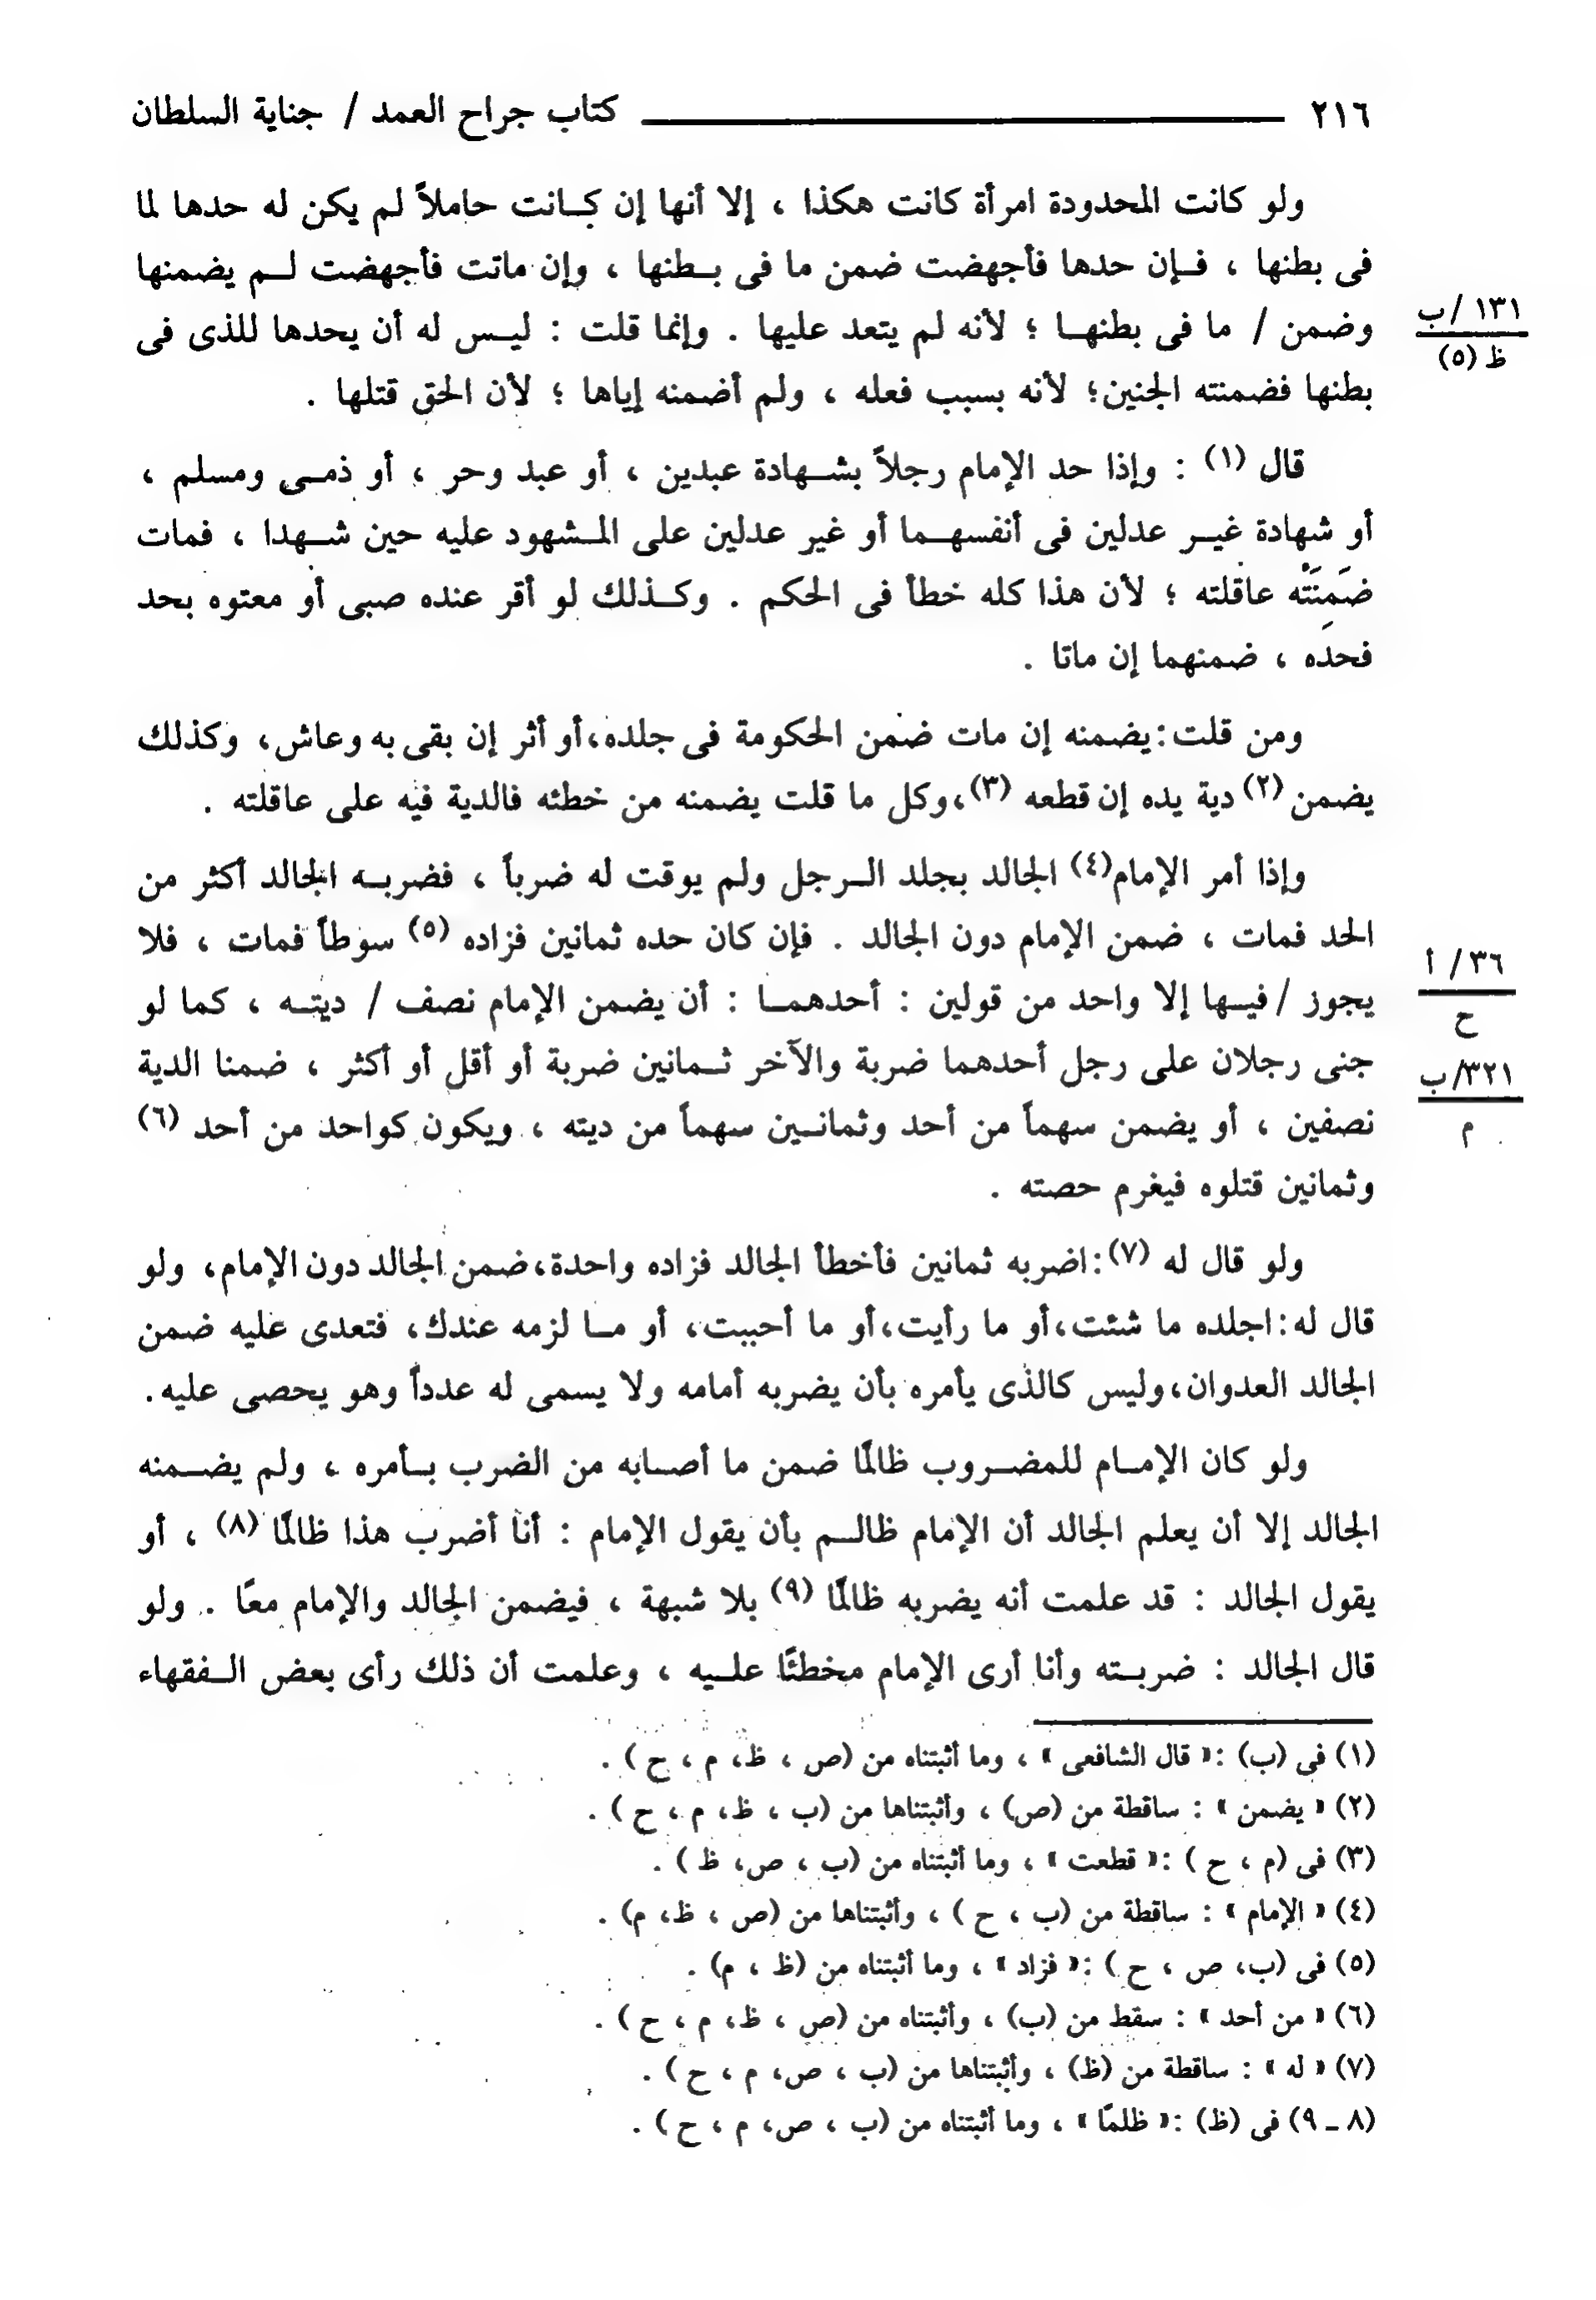 ٢١٦ كتاب جراح العمد / جناية السلطان
ولو كانت المحدودة امرأة كانت هكذا ، إلا أنها إن كانت حاملاً لم يكن له حدها لما
فى بطنها ، فإن حدها فأجهضت ضمن ما فى بطنها ، وإن ماتت فأجهضت لم يضمنها
وضمن / ما فى بطنها ؛ لأنه لم يتعد عليها . وإنما قلت : ليس له أن يحدها للذى فى
١٣١ /ب
ظ (٥)
بطنها فضمنته الجنين؛ لأنه بسبب فعله ، ولم أضمنه إياها ؛ لأن الحق قتلها .
قال (١) : وإذا حد الإمام رجلاً بشهادة عبدين ، أو عبد وحر ، أو ذمى ومسلم ،
أو شهادة غير عدلين فى أنفسهما أو غير عدلين على المشهود عليه حين شهدا ، فمات
ضَمِنَتْه عاقلته ؛ لأن هذا كله خطأ فى الحكم . وكذلك لو أقر عنده صبى أو معتوه بحد
فحده ، ضمنهما إن ماتا .
ومن قلت:يضمنه إن مات ضمن الحكومة فى جلده،أو أثر إن بقى به وعاش، وكذلك
يضمن (٢) دية يده إن قطعه (٣)،وكل ما قلت يضمنه من خطئه فالدية فيه على عاقلته .
وإذا أمر الإمام(٤) الجالد بجلد الرجل ولم يوقت له ضرباً ، فضربه الجالد أكثر من
الحد فمات ، ضمن الإمام دون الجالد . فإن كان حده ثمانين فزاده (٥) سوطاً فمات ، فلا
٣٦/ أ
ح
يجوز / فيها إلا واحد من قولين : أحدهما : أن يضمن الإمام نصف / ديته ، كما لو
جنى رجلان على رجل أحدهما ضربة والآخر ثمانين ضربة أو أقل أو أكثر ، ضمنا الدية
٣٢١/ب
م
نصفين ، أو يضمن سهماً من أحد وثمانين سهماً من ديته ، ويكون كواحد من أحد (٦)
وثمانين قتلوه فيغرم حصته .
ولو قال له (٧):اضربه ثمانين فأخطأ الجالد فزاده واحدة،ضمن الجالد دون الإمام، ولو
قال له:اجلده ما شئت،أو ما رأيت،أو ما أحببت، أو ما لزمه عندك، فتعدى عليه ضمن
الجالد العدوان،وليس كالذى يأمره بأن يضربه أمامه ولا يسمى له عدداً وهو يحصى عليه.
ولو كان الإمام للمضروب ظالمًا ضمن ما أصابه من الضرب بأمره ، ولم يضمنه
الجالد إلا أن يعلم الجالد أن الإمام ظالم بأن يقول الإمام : أنا أضرب هذا ظالمًا (٨) ، أو
يقول الجالد : قد علمت أنه يضربه ظالمًا (٩) بلا شبهة ، فيضمن الجالد والإمام معًا . ولو
قال الجالد : ضربته وأنا أرى الإمام مخطئًا عليه ، وعلمت أن ذلك رأى بعض الفقهاء
(١) فى (ب) :« قال الشافعى » ، وما أثبتناه من (ص ، ظ، م ، ح ) .
(٢) « يضمن » : ساقطة من (ص) ، وأثبتناها من (ب ، ظ، م ، ح ) .
(٣) فى (م ، ح ) :« قطعت » ، وما أثبتناه من (ب ، ص، ظ ) .
(٤) « الإمام » : ساقطة من (ب ، ح ) ، وأثبتناها من (ص ، ظ، م) .
(٥) فى (ب، ص ، ح ) :« فزاد » ، وما أثبتناه من (ظ ، م) .
(٦) « من أحد » : سقط من (ب) ، وأثبتناه من (ص ، ظ، م ، ح ) .
(٧) « له » : ساقطة من (ظ) ، وأثبتناها من (ب ، ص، م ، ح ) .
(٨ ـ ٩) فى (ظ) :« ظلمًا » ، وما أثبتناه من (ب ، ص، م ، ح ) .